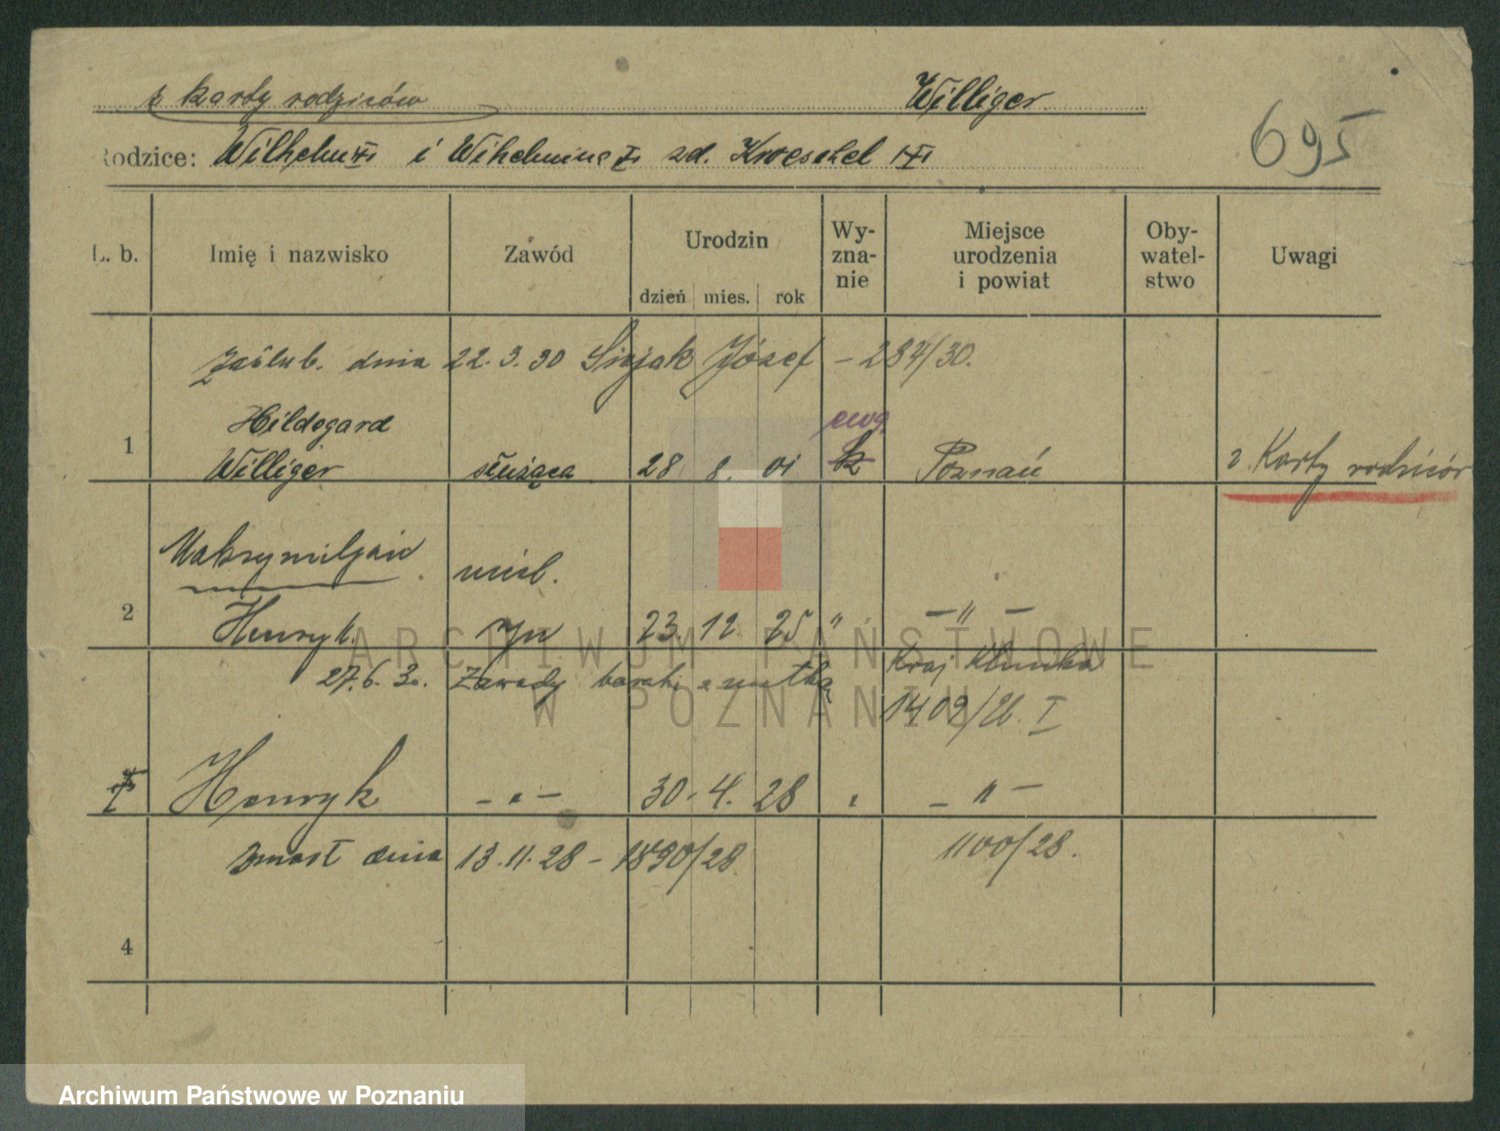 z karty rodziców Williger
695
Rodzice: Wilhelm i Wilhelmine zd. Kroeschel
L. b. Imię i nazwisko Zawód Urodzin dzień mies. rok Wy-zna-nie Miejsce urodzenia i powiat Oby-watel-stwo Uwagi
Zaślub. dnia 22.3.30 Józef – 234/30.
ewg.
1 Hildegard
Williger służąca 28 8 01 k Poznań z Karty rodziców
Maksymiljan
2 Henryk. syn 23. 12. 25 " – " –
27.6.30. Zawady baraki z matką
1409/26. I
Henryk – " – 30. 4. 28 " – " –
zmarł dnia 13.11.28 – 1890/28 1100/28.
4
ARCHIWUM PAŃSTWOWE
W POZNANIU
Archiwum Państwowe w Poznaniu